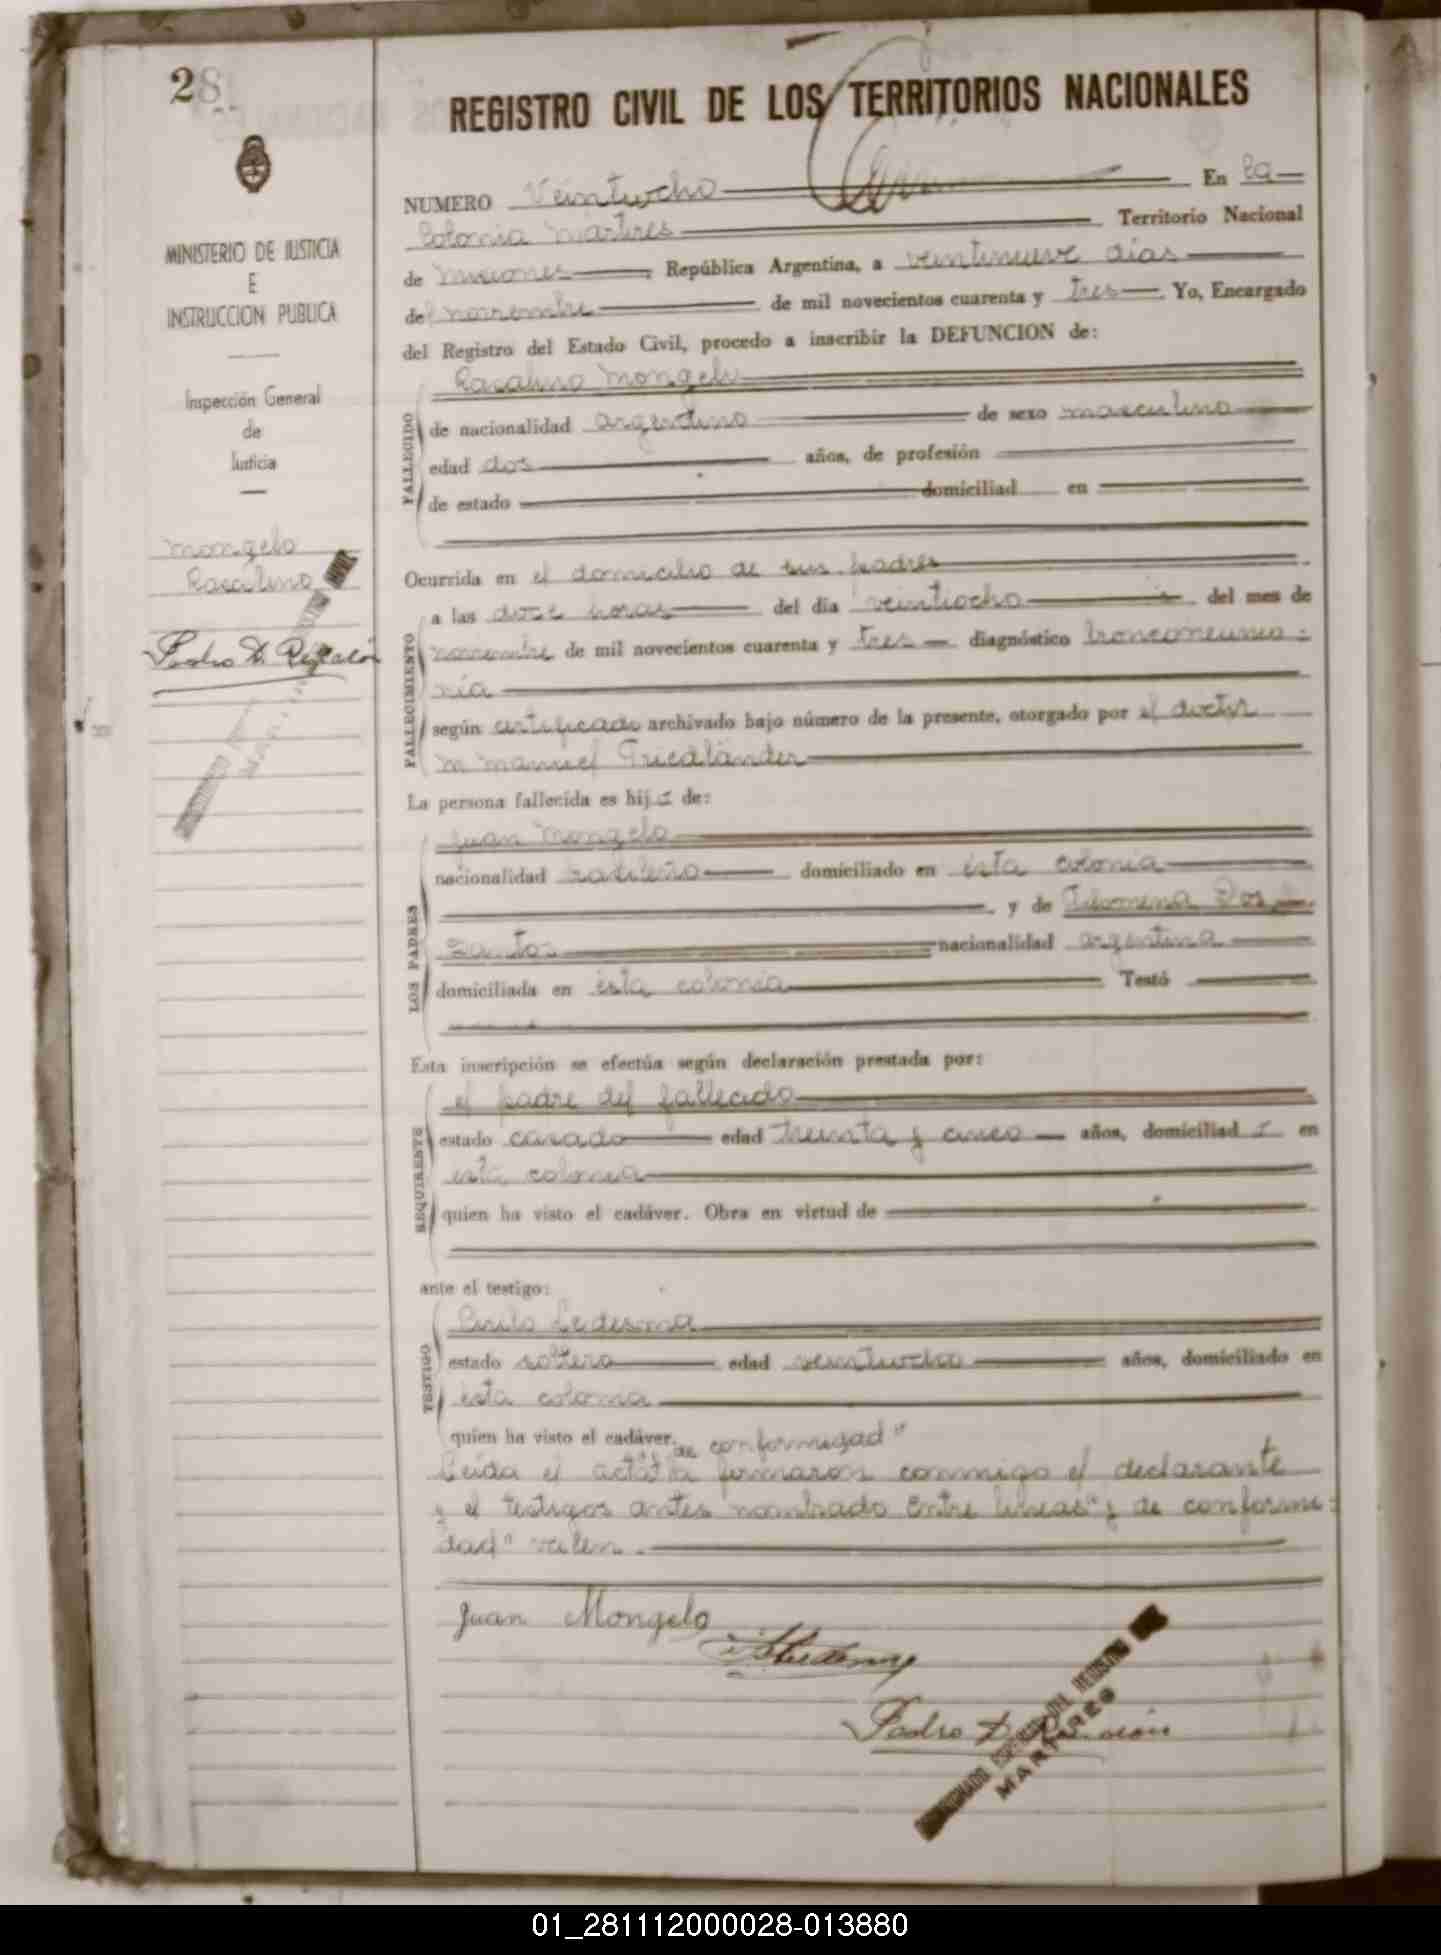 28
REGISTRO CIVIL DE LOS TERRITORIOS NACIONALES
MINISTERIO DE JUSTICIA
E
INSTRUCCION PUBLICA
Inspección General
de
Justicia
Mongelo
Pedro D.
NUMERO Veintiocho En la
Colonia Martires Territorio Nacional
de Misiones República Argentina, a veintinueve días
de noviembre de mil novecientos cuarenta y tres Yo, Encargado
del Registro del Estado Civil, procedo a inscribir la DEFUNCION de:
FALLECIDO
Mongelo
de nacionalidad argentino de sexo masculino
edad dos años, de profesión
de estado domiciliad en
Ocurrida en el domicilio de sus padres
FALLECIMIENTO
a las doce horas del día veintiocho del mes de
noviembre de mil novecientos cuarenta y tres diagnóstico bronconeumo=
nía
según certificado archivado bajo número de la presente, otorgado por el doctor
M Manuel Friedländer
La persona fallecida es hij o de:
LOS PADRES
Juan Mongelo
nacionalidad domiciliado en ésta colonia
y de Filomena Dos
Santos nacionalidad argentina
domiciliada en ésta colonia Testó
Esta inscripción se efectúa según declaración prestada por:
REQUIRENTE
el padre del fallecido
estado casado edad treinta y cinco años, domiciliad o en
esta colonia
quien ha visto el cadáver. Obra en virtud de
ante el testigo:
TESTIGO
Ledesma
estado soltero edad veintiocho años, domiciliado en
ésta colonia
quien ha visto el cadáver. de conformidad"
Leída el acta la firmaron conmigo el declarante
y el testigos antes nombrado Entre líneas "y de conformi=
dad" valen.
Juan Mongelo
Pedro D.
MARTIRES
01_281112000028-013880